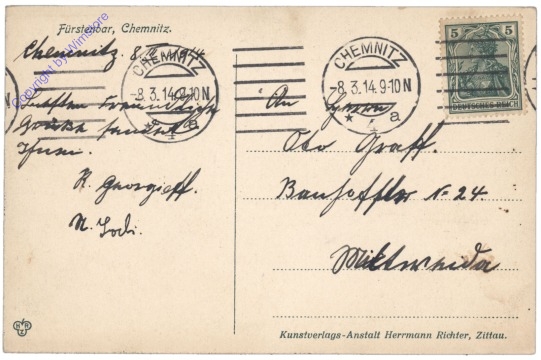 Fürstenbar, Chemnitz.
Copyright by Wimstore
Chemnitz 8. 1914
Ihnen
K. Georgieff.
N.
CHEMNITZ
-8.3.14.9-10N
* a
CHEMNITZ
-8.3.14.9-10N
* * a
5 5
DEUTSCHES REICH
An Herrn
Otto Graff.
N. 24.
Mittweida
H R Z
Kunstverlags-Anstalt Herrmann Richter, Zittau.